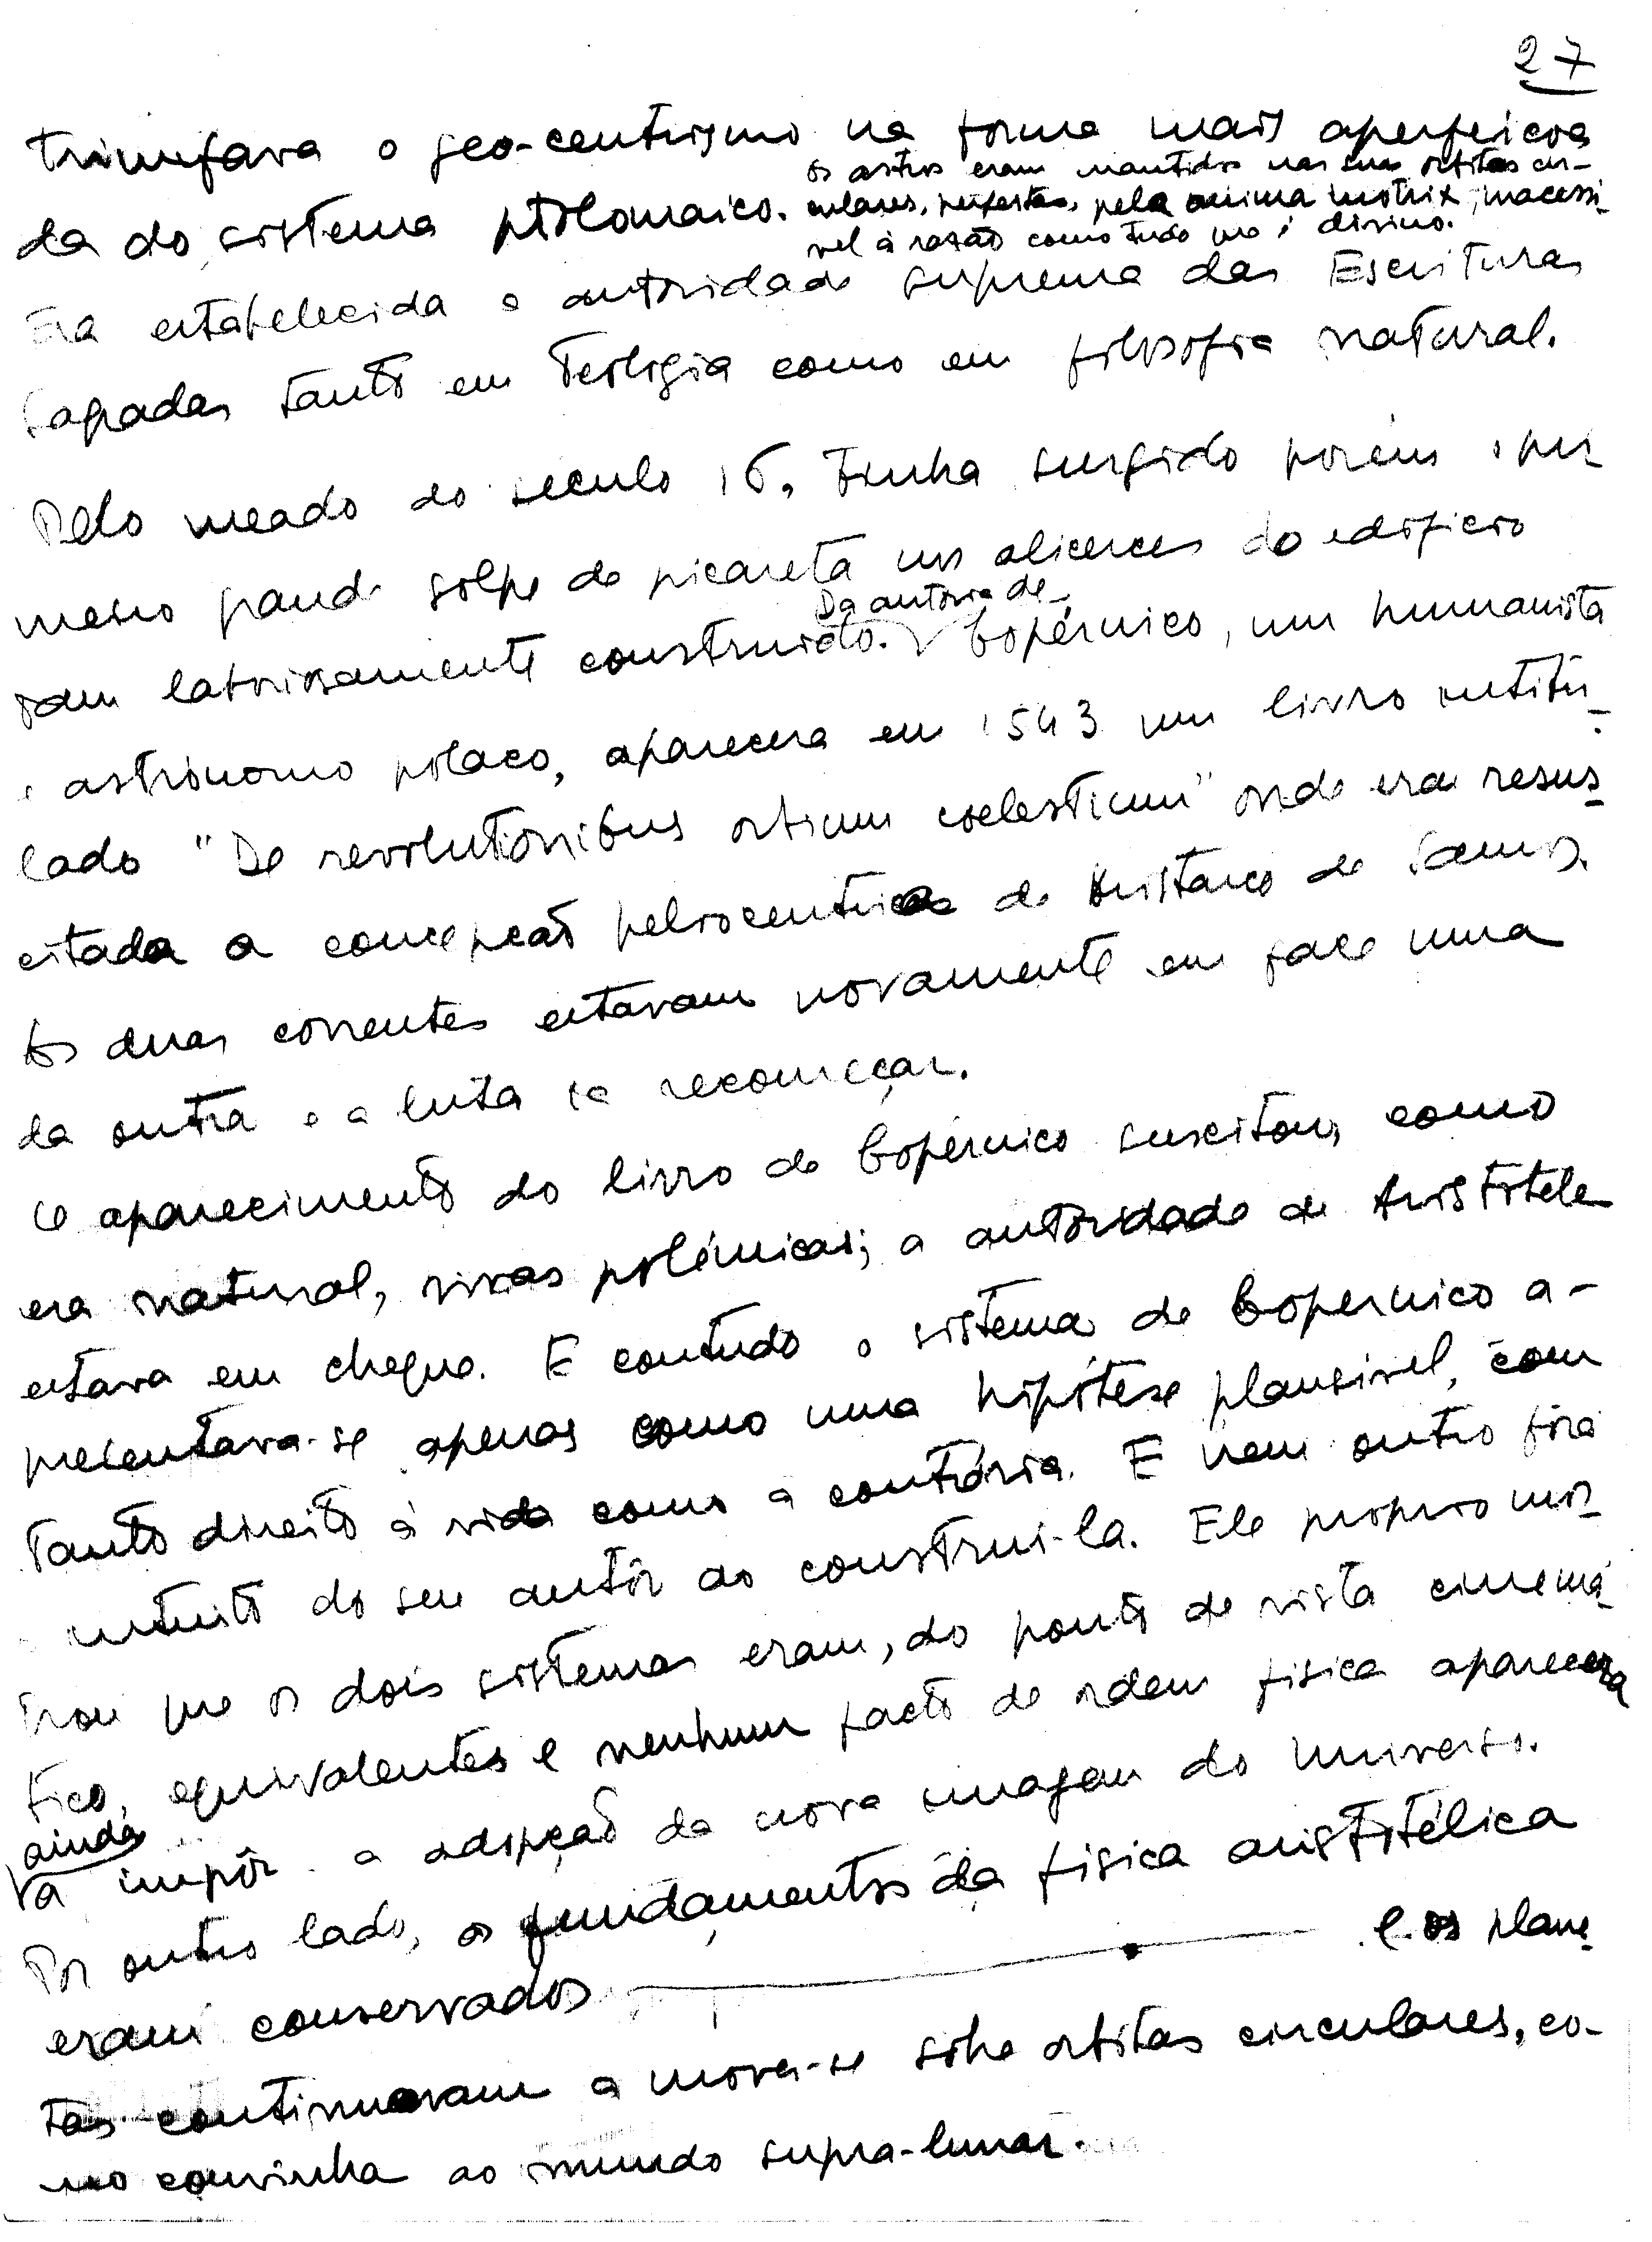 27
triunfava o geo-centrismo na forma mais aperfeiçoa
da do sistema ptolomaico. os astros eram mantidos nas suas orbitas cir-
culares, perfeitas, pela anima motrix, inacessi-
vel à razão como tudo que é divino.
Era estabelecida a autoridade suprema das Escrituras
Sagradas tanto em Teologia como em filosofia natural.
Pelo meado do século 16, tinha surgido porém o pri-
meiro grande golpe de picareta nos alicerces do edificio
Da autoria de
tam laboriosamente construido. Copérnico, um humanista
e astrónomo polaco, aparecera em 1543 um livro intitu-
lado "De revolutionibus orbium coelestium" onde era resus-
citada a concepção heliocentrica de Aristarco de Samos.
As duas correntes estavam novamente em face uma
da outra e a luta ia recomeçar.
O aparecimento do livro de Copérnico suscitou, como
era natural, vivas polémicas; a autoridade de Aristotele
estava em cheque. E contudo o sistema de Copernico a-
presentava-se apenas como uma hipótese plausivel, com
tanto direito à vida como a contrária. E nem outro fôra
o intuito do seu autôr ao construi-la. Ele proprio mos-
trou que os dois sistemas eram, do ponto de vista cinemá-
tico, equivalentes e nenhum facto de ordem fisica aparecera
ainda
a impôr a adopção da nova imagem do Universo.
Por outro lado, os fundamentos da fisica aristotélica
eram conservados e os plane-
tas continuavam a mover-se sobre orbitas circulares, co-
mo convinha ao mundo supra-lunar.